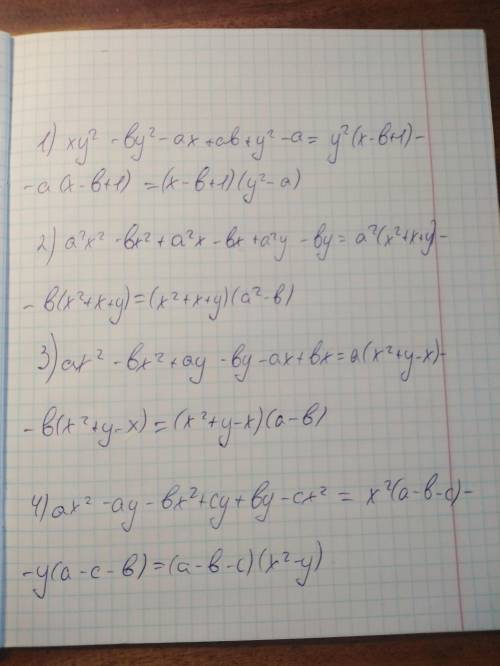 1) xy² - by² - ax + ab + y² - a = y²(x-b+1) -
- a(x-b+1) = (x-b+1)(y²-a)
2) a²x² - bx² + a²x - bx + a²y - by = a²(x²+x+y) -
- b(x²+x+y) = (x²+x+y)(a²-b)
3) ax² - bx² + ay - by - ax + bx = a(x²+y-x) -
- b(x²+y-x) = (x²+y-x)(a-b)
4) ax² - ay - bx² + cy + by - cx² = x²(a-b-c) -
- y(a-c-b) = (a-b-c)(x²-y)